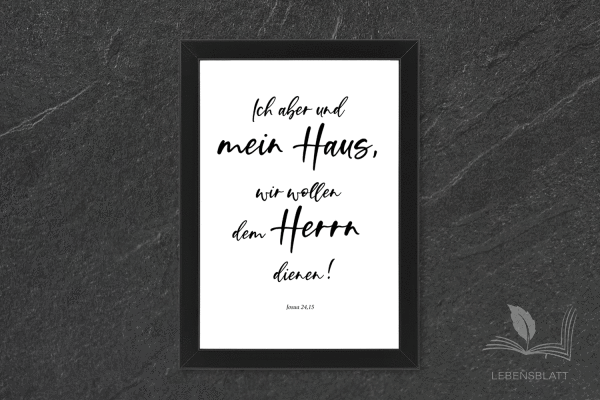 Ich aber und
mein Haus,
wir wollen
dem Herrn
dienen!
Josua 24,15
LEBENSBLATT